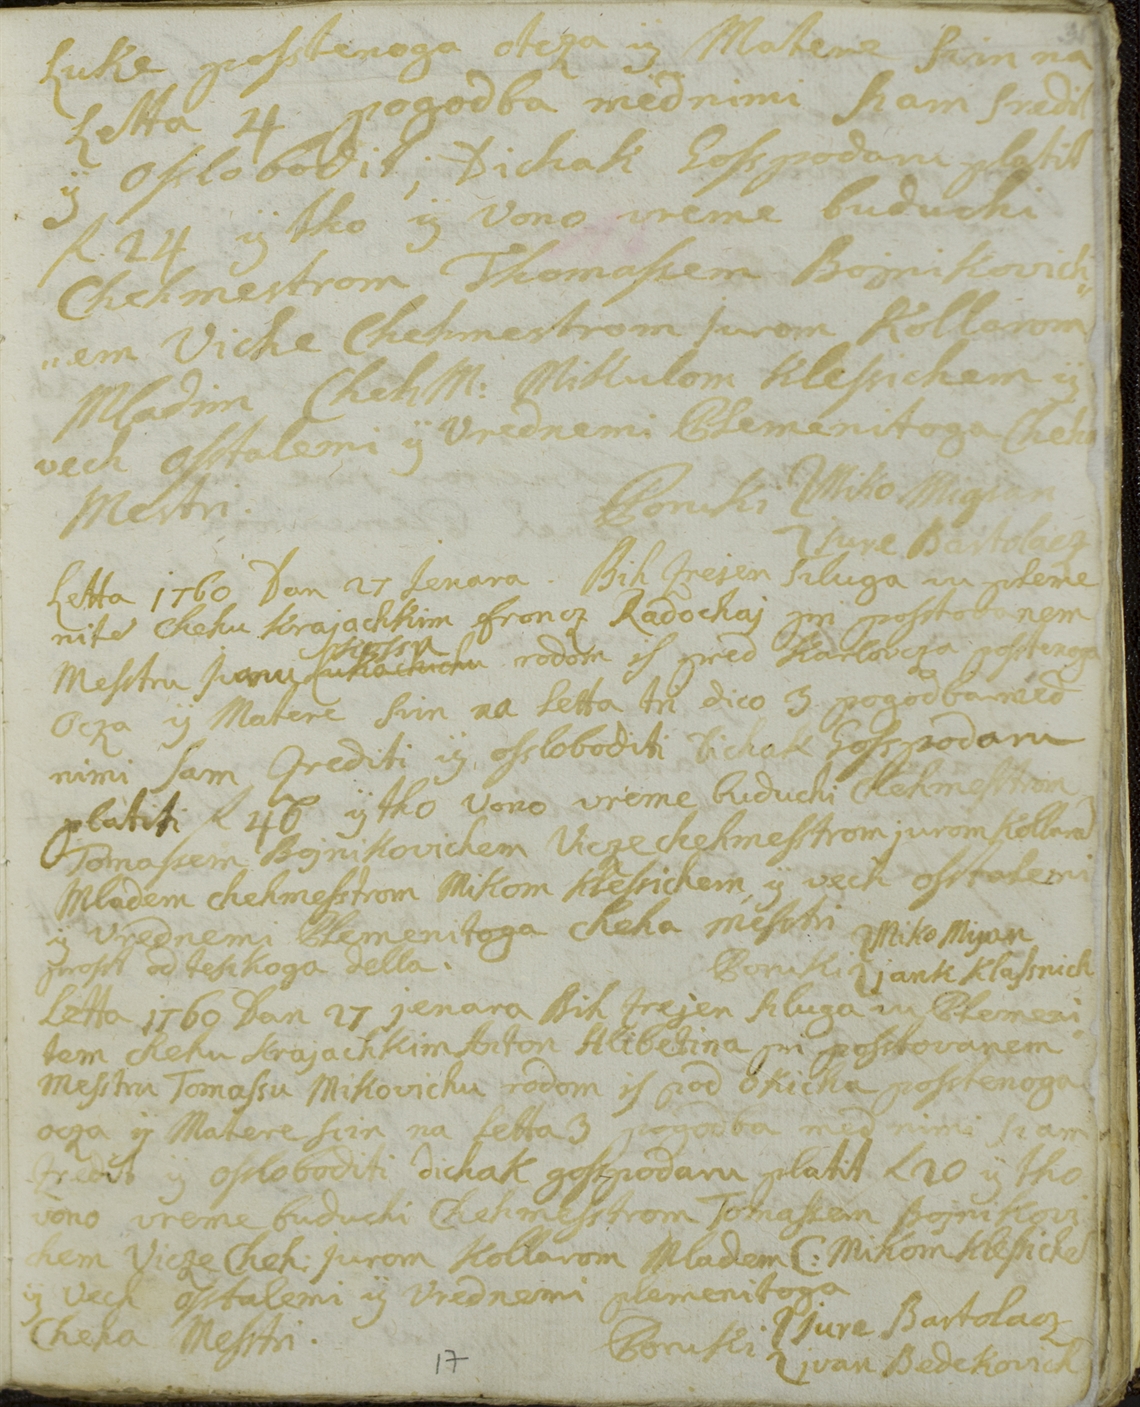 Luke posstenoga otcza ÿ Matere szin na
Letta 4 pogodba med nimi szam sredil
ÿ osslobodil, Dichak Gosspodaru platil
R 24 ÿ tho ÿ vono vreme buduchi
Chehmestrom Thomassem Bojnikovich
„em Viche Chehmestrom Jurom Kollarom
Mladim Cheh M: Mikulom Klessichem ÿ
vech osstalemi ÿ Vrednemi Plemenitoga Cheha
Mestri.
Poruki Miko Migian
Jure Bartolacz
Letta 1760 Dan 27 Jenara. Bih Prejen szluga u pleme
nite chehu Krajachkim Francz Radochaj pri posstovanem
Messtru Ivanu rodom is pred Karlovcza postenoga
Ocza ÿ Matere szin na Letta tri dico 3 pogodba med
nimi szam Srediti ÿ ossloboditi Dichak Gosspodaru
platiti R 46 ÿ tho vono vreme buduchi Chehmesstrom
Tomassem Bojnikovichem Vicze chehmesstrom jurom Kollarom
Mladem chehmesstrom Mikom Klessichem ÿ vech osstalemi
ÿ Vrednemi Plemenitoga Cheha messtri
prosst od teskoga della.
Poruki Miko Mijan
jank Klassnich
Letta 1760 Dan 27 jenara Bih Prejen szluga u Plemeni
tem chehu Krajachkim Anton Hlibetina pri posstovanem
Messtru Tomassu Mikovichu rodom is pod Okicha posstenoga
ocza ÿ Matere szin na Letta 3 pogodba med nimi szam
Sredil ÿ ossloboditi dichak gosspodaru platil R 20 ÿ tho
vono vreme buduchi Chehmesstrom Tomassem Bojnikovi
chem Vicze Cheh: Jurom Kollarom Mladem C: Mikom Klessichem
ÿ Vech osstalemi ÿ Vrednemi plemenitoga
Cheha Messtri.
Poruki Jure Bartolacz
ivan Bedekovich
17